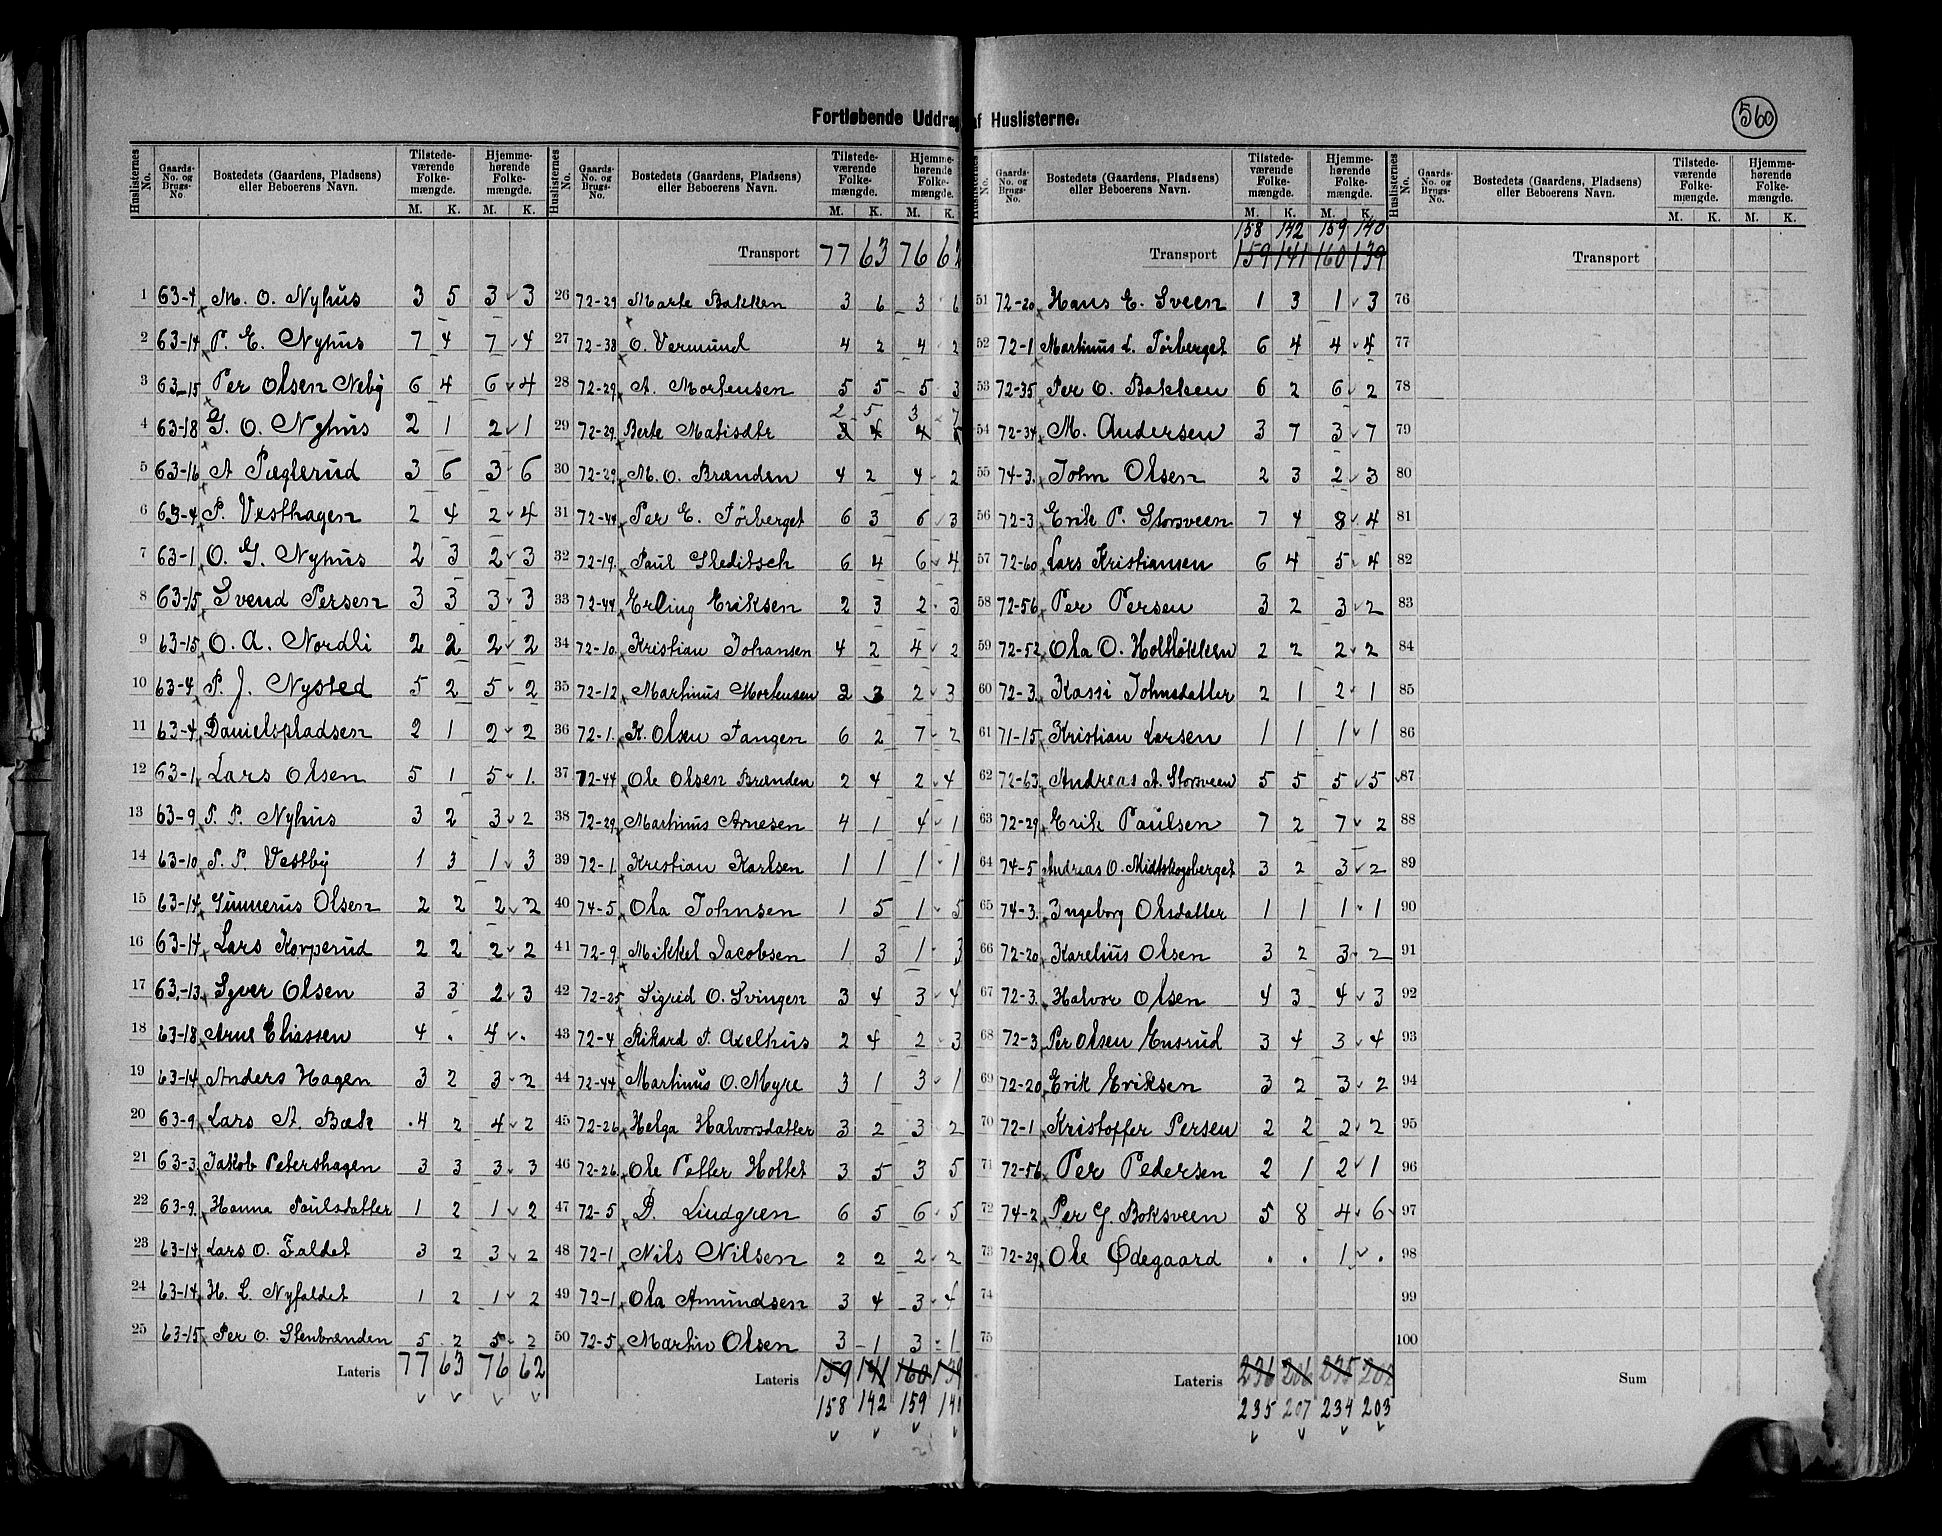 Fortløbende Uddrag af Huslisterne.
560
Huslisternes No. Gaards-No. og Brugs-No. Bostedets (Gaardens, Pladsens) eller Beboerens Navn. Tilstedeværende Folkemængde. Hjemmehørende Folkemængde.
M. K. M. K.
1 63-4 M. O. Nyhus 3 5 3 3
2 63-14 P. E. Nyhus 7 4 7 4
3 63-15 Per Olsen Neby 6 4 6 4
4 63-18 G. O. Nyhus 2 1 2 1
5 63-16 A Pæglerud 3 6 3 6
6 63-4 P. Vesthagen 2 4 2 4
7 63-1 O. G. Nyhus 2 3 2 3
8 63-15 Svend Persen 3 3 3 3
9 63-15 O. A. Nordli 2 2 2 2
10 63-4 P. J. Nysted 5 2 5 2
11 63-4 Danielspladsen 2 1 2 2
12 63-1 Lars Olsen 5 1 5 1
13 63-9 P. P. Nyhus 3 2 3 2
14 63-10 P. P. Vestby 1 3 1 3
15 63-14 Gunnerus Olsen 2 2 2 2
16 63-14 Lars Korperud 2 2 2 2
17 63-13 Syver Olsen 3 3 2 3
18 63-18 Arne Eliassen 4 . 4 .
19 63-14 Anders Hagen 3 2 3 2
20 63-9 Lars A. Bæk 4 2 4 2
21 63-3 Jakob Petershagen 3 3 3 3
22 63-9 Hanna Paulsdatter 1 2 1 2
23 63-14 Lars O. Faldet 3 2 3 2
24 63-14 H. L. Nyfaldet 1 2 1 2
25 63-15 Per O. Stenbrænden 5 2 5 2
Lateris 77 63 76 62
Huslisternes No. Gaards-No. og Brugs-No. Bostedets (Gaardens, Pladsens) eller Beboerens Navn. Tilstedeværende Folkemængde. Hjemmehørende Folkemængde.
M. K. M. K.
Transport 77 63 76 62
26 72-29 Marte Bakken 3 6 3 6
27 72-38 O. Vermund 4 2 4 2
28 72-29 A. Mortensen 5 5 5 3
2 5 3 7
29 72-29 Berte Matisdtr 3 4 4 6
30 72-29 M. O. Brænden 4 2 4 2
31 72-44 Per E. Tørberget 6 3 6 3
32 72-19 Paul Gleditsch 6 4 6 4
33 72-44 Erling Eriksen 2 3 2 3
34 72-10 Kristian Johansen 4 2 4 2
35 72-12 Martinus Mortensen 2 3 2 3
36 72-1 K. Olsen Tangen 6 2 7 2
37 72-44 Ole Olsen Brænden 2 4 2 4
38 72-29 Martinus Arnesen 4 1 4 1
39 72-1 Kristian Karlsen 1 1 1 1
40 74-5 Ola Johnsen 1 5 1 5
41 72-9 Mikkel Jacobsen 1 3 1 3
42 72-25 Sigrid O. Svingen 3 4 3 4
43 72-4 Rikard P. Axelhus 2 4 2 3
44 72-44 Martinus O. Myre 3 1 3 1
45 72-26 Helga Halvorsdatter 3 2 3 2
46 72-26 Ole Petter Holtet 3 5 3 5
47 72-5 D. Lindgren 6 5 6 5
48 72-1 Nils Nilsen 2 2 2 2
49 72-1 Ola Amundsen 3 4 3 4
50 72-5 Martin Olsen 3 1 3 1
Lateris 159 141 160 139
158 142 159 140
Huslisternes No. Gaards-No. og Brugs-No. Bostedets (Gaardens, Pladsens) eller Beboerens Navn. Tilstedeværende Folkemængde. Hjemmehørende Folkemængde.
M. K. M. K.
158 142 159 140
Transport 159 141 160 139
51 72-20 Hans E. Sveen 1 3 1 3
52 72-1 Martinus L. Tørberget 6 4 4 4
53 72-35 Per O. Bakken 6 2 6 2
54 72-34 M. Andersen 3 7 3 7
55 74-3 John Olsen 2 3 2 3
56 72-3 Erik P. Storsveen 7 4 8 4
57 72-60 Lars Kristiansen 6 4 5 4
58 72-56 Per Persen 3 2 3 2
59 72-52 Ola O. Holtløkken 2 2 2 2
60 72-3 Kassi Johnsdatter 2 1 2 1
61 71-15 Kristian Larsen 1 1 1 1
62 72-63 Andreas A. Storsveen 5 5 5 5
63 72-29 Erik Paulsen 7 2 7 2
64 74-5 Andreas O. Midtskogsberget 3 2 3 2
65 74-3 Ingeborg Olsdatter 1 1 1 1
66 72-20 Karelius Olsen 3 2 3 2
67 72-3 Halvor Olsen 4 3 4 3
68 72-3 Per Olsen Ensrud 3 4 3 4
69 72-20 Erik Eriksen 3 2 3 2
70 72-1 Kristoffer Persen 2 2 2 2
71 72-56 Per Pedersen 2 1 2 1
72 74-2 Per G. Boksveen 5 8 4 6
73 72-29 Ole Ødegaard . . 1 .
74
75
Lateris 236 206 235 202
235 207 234 203
Huslisternes No. Gaards-No. og Brugs-No. Bostedets (Gaardens, Pladsens) eller Beboerens Navn. Tilstedeværende Folkemængde. Hjemmehørende Folkemængde.
M. K. M. K.
Transport
76
77
78
79
80
81
82
83
84
85
86
87
88
89
90
91
92
93
94
95
96
97
98
99
100
Sum